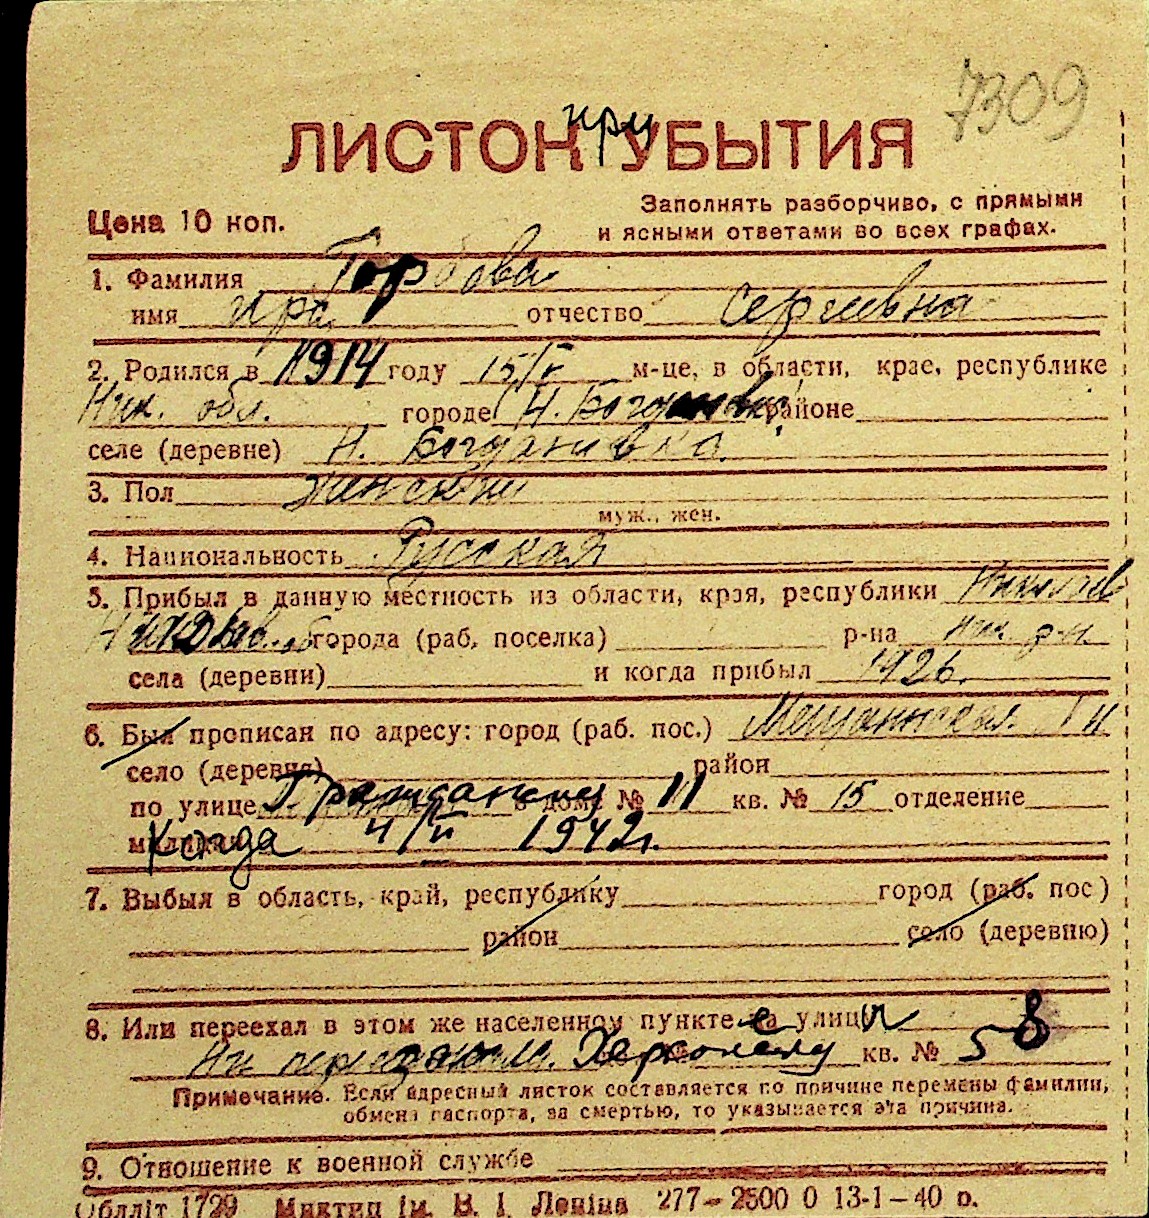 7309
при
ЛИСТОК УБЫТИЯ
Цена 10 коп.
Заполнять разборчиво, с прямыми
и ясными ответами во всех графах.
1. Фамилия Горбова
имя Ира отчество Сергиевна
2. Родился в 1914 году 15/V м-це, в области, крае, республике
Ник. обл. городе Н. Богдановка районе
селе (деревне) Н. Богданивка.
3. Пол женский
муж., жен.
4. Национальность Русская
5. Прибыл в данную местность из области, края, республики
города (раб. поселка) р-на Ник. р-н.
села (деревни) и когда прибыл 1926.
6. Был прописан по адресу: город (раб. пос.)
село (деревня) район
по улице Гражданску дома № 11 кв. № 15 отделение
милиции Когда 4/II 1942г.
7. Выбыл в область, край, республику город (раб. пос)
район село (деревню)
8. Или переехал в этом же населенном пункте на улицу
кв. № 58
Примечание. Если адресный листок составляется по причине перемены фамилии,
обмена паспорта, за смертью, то указывается эта причина.
9. Отношение к военной службе
Обллiт 1729 iм. В. I. Ленiна 277—2500 0 13-1—40 р.